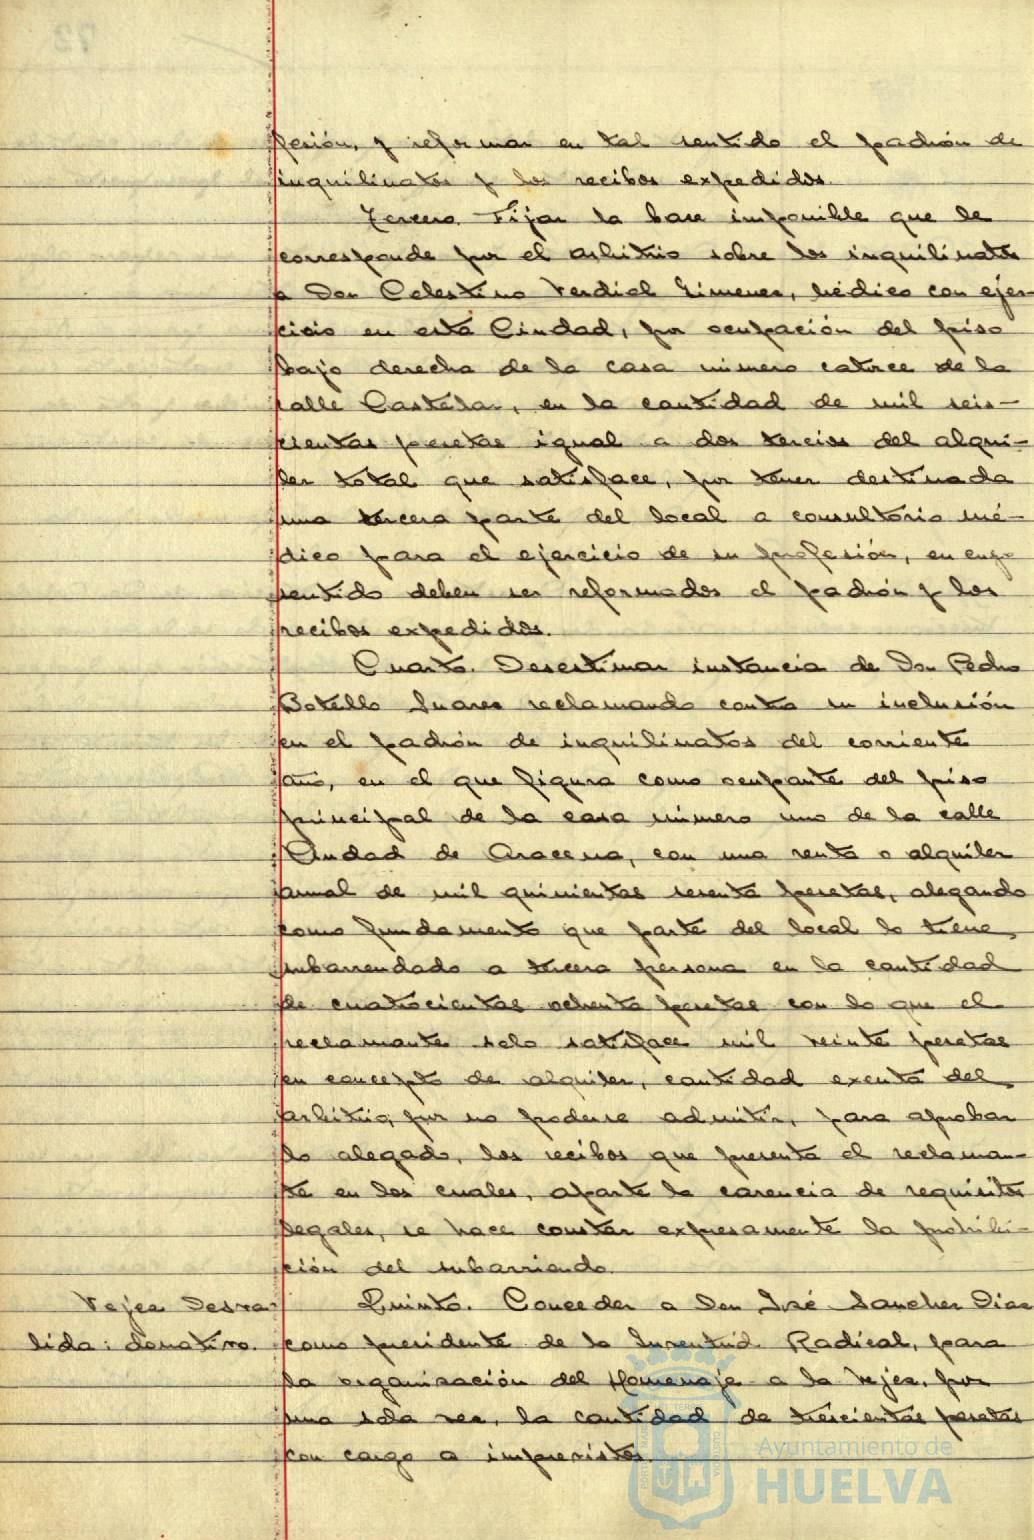 fesión, y reformar en tal sentido el padrón de
inquilinatos y los recibos expedidos.
Tercero. Fijar la base imponible que le
corresponde por el arbitrio sobre los inquilinatos
a Don Celestino Verdial Gimenez, médico con ejer-
cicio en esta Ciudad, por ocupación del piso
bajo derecha de la casa número catorce de la
calle Castelar, en la cantidad de mil seis-
cientas pesetas igual a dos tercios del alqui-
ler total que satisface, por tener destinada
una tercera parte del local a consultorio mé-
dico para el ejercicio de su profesión, en cuyo
sentido deben ser reformados el padrón y los
recibos expedidos.
Cuarto. Desestimar instancia de Don Pedro
Botello Suarez reclamando contra su inclusión
en el padrón de inquilinatos del corriente
año, en el que figura como ocupante del piso
principal de la casa número uno de la calle
Ciudad de Aracena, con una renta o alquiler
anual de mil quinientas sesenta pesetas, alegando
como fundamento que parte del local lo tiene
subarrendado a tercera persona en la cantidad
de cuatrocientas ochenta pesetas con lo que el
reclamante solo satisface mil veinte pesetas
en concepto de alquiler, cantidad exenta del
arbitrio, por no poderse admitir, para aprobar
lo alegado, los recibos que presenta el reclaman-
te en los cuales, aparte la carencia de requisitos
legales, se hace constar expresamente la prohibi-
ción del subarriendo.
Vejez Desva-
lida: donativo.
Quinto. Conceder a Don José Sanchez Diaz
como presidente de la Juventud Radical, para
la organización del Homenaje a la Vejez, por
una sola vez, la cantidad de trescientas pesetas
con cargo a imprevistos.
Ayuntamiento de
HUELVA